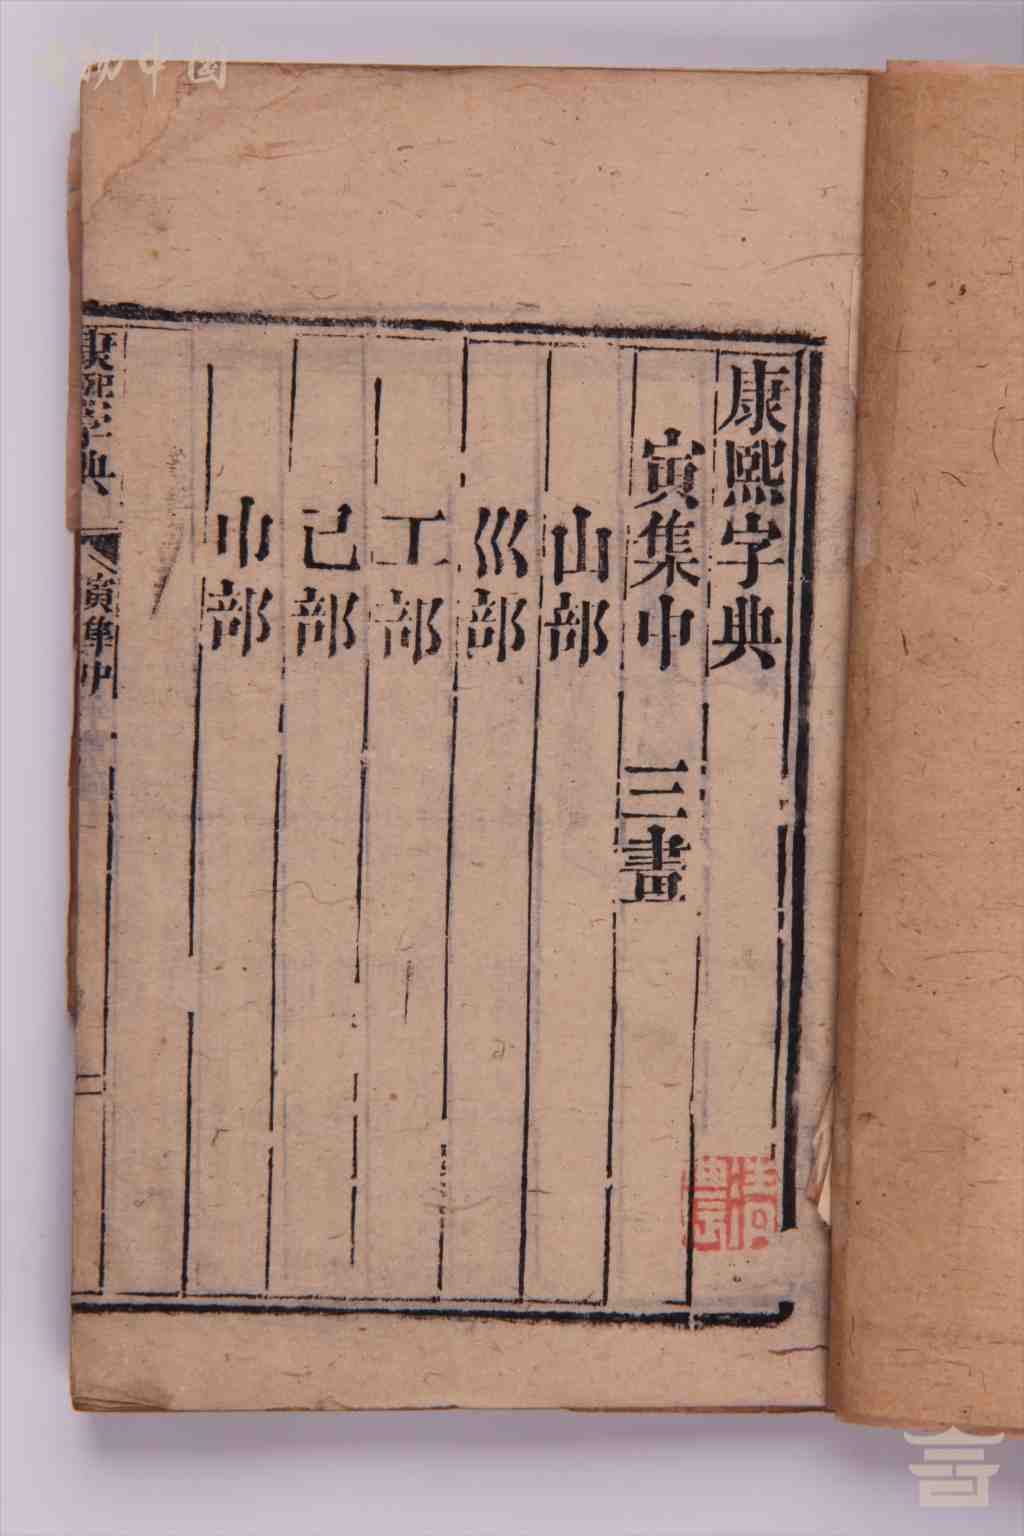 康熙字典
寅集中 三畫
山部
巛部
工部
己部
巾部
康熙字典 寅集中 一
中國